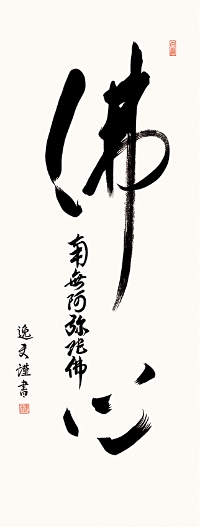 佛心
南無阿弥陀佛
逸文謹書